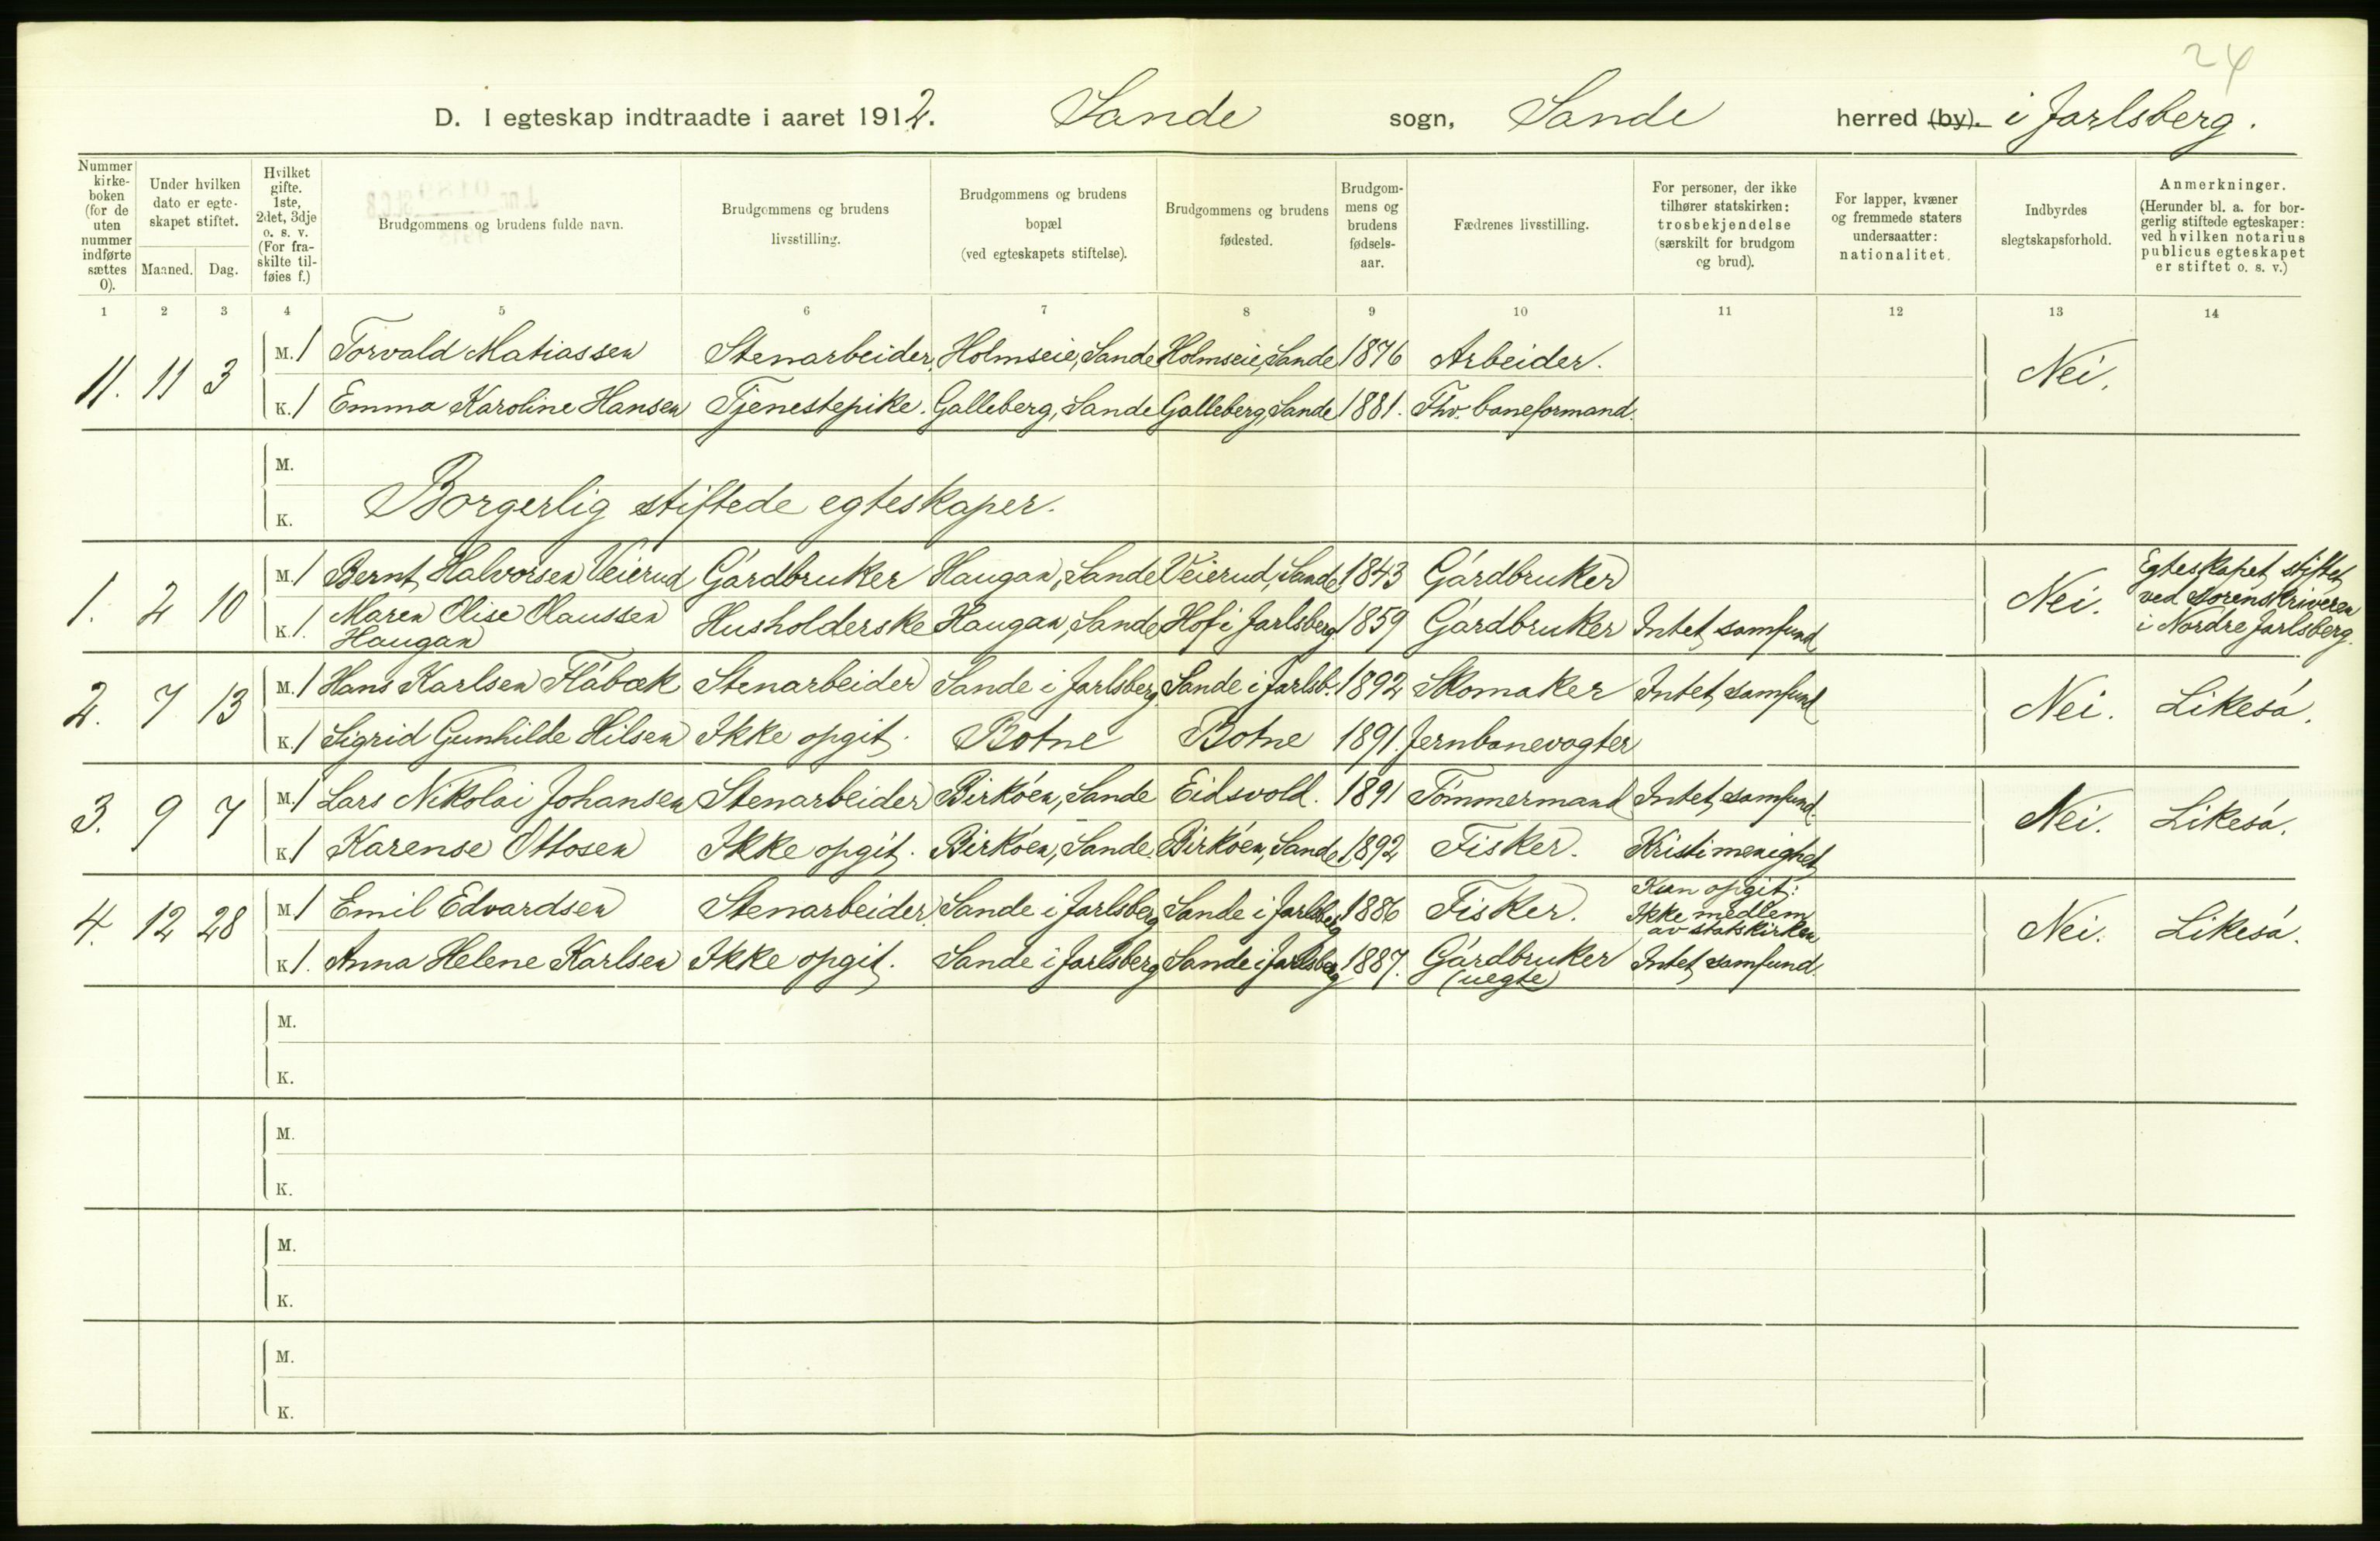 24
D. I egteskap indtraadte i aaret 1912. Sande sogn, Sande herred (by). i Jarlsberg.
Nummer kirkeboken (for de uten nummer indførte sættes 0).
Under hvilken dato er egteskapet stiftet.
Maaned. Dag.
Hvilket gifte. 1ste, 2det, 3dje o. s. v. (For fraskilte tilføies f.)
Brudgommens og brudens fulde navn.
Brudgommens og brudens livsstilling.
Brudgommens og brudens bopæl (ved egteskapets stiftelse).
Brudgommens og brudens fødested.
Brudgommens og brudens fødselsaar.
Fædrenes livsstilling.
For personer, der ikke tilhører statskirken: trosbekjendelse (særskilt for brudgom og brud).
For lapper, kvæner og fremmede staters undersaatter: nationalitet.
Indbyrdes slegtskapsforhold.
Anmerkninger. (Herunder bl. a. for borgerlig stiftede egteskaper: ved hvilken notarius publicus egteskapet er stiftet o. s. v.)
1 2 3 4 5 6 7 8 9 10 11 12 13 14
11. 11 3 M. 1 Torvald Matiassen Stenarbeider. Holmseie, Sande Holmseie, Sande 1876 Arbeider. Nei.
K. 1 Emma Karoline Hansen Tjenestepike. Galleberg, Sande Galleberg, Sande 1881. Fhv. baneformand.
M.
K. Borgerlig stiftede egteskaper.
1. 2 10 M. 1 Bernt Halvorsen Veierud Gårdbruker Haugan, Sande Veierud, Sande 1843 Gårdbruker Nei. Egteskapet stiftet ved sorenskriveren i Nordre Jarlsberg.
K. 1. Maren Olise Olaussen Haugan Husholderske Haugan, Sande Hof i Jarlsberg. 1859 Gårdbruker Intet samfund
2. 7 13 M. 1 Hans Karlsen Flåbæk Stenarbeider Sande i Jarlsberg Sande i Jarlsb. 1892 Skomaker Intet samfund Nei. Likeså.
K. 1 Sigrid Gunhilde Hilsen Ikke opgit. Botne Botne 1891. Jernbanevogter
3. 9 7 M. 1 Lars Nikolai Johansen Stenarbeider Birkóen, Sande Eidsvold. 1891 Tómmermand Intet samfund. Nei. Likeså.
K. 1 Karense Ottosen Ikke opgit. Birkóen, Sande. Birkóen, Sande 1892 Fisker. Kristi menighet
4. 12 28 M. 1 Emil Edvardsen Stenarbeider. Sande i Jarlsberg Sande i Jarlsberg 1886 Fisker. Kun opgit: Ikke medlem av statskirken Nei. Likeså.
K. 1. Anna Helene Karlsen Ikke opgit. Sande i Jarlsberg Sande i Jarlsberg 1887. Gårdbruker (uegte) Intet samfund.
M.
K.
M.
K.
M.
K.
M.
K.